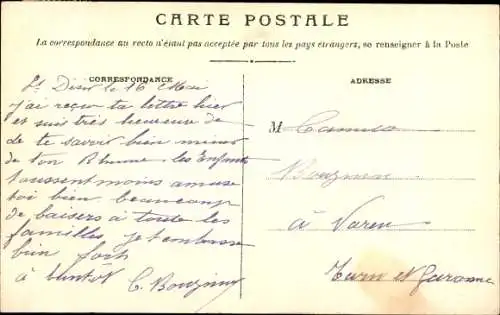 CARTE POSTALE
La correspondance au recto n'étant pas acceptée par tous les pays étrangers, se renseigner à la Poste
CORRESPONDANCE
St le 16 Mai
j'ai reçu ta lettre hier
et suis très heureuse de
de te savoir bien mieux
de ton Rhume les Enfants
toussent moins amuse
toi bien beaucoup
de baisers à toute les
familles je t'embrasse
bien fort
à bientôt C.
ADRESSE
M
à Varen
Tarn et Garonne